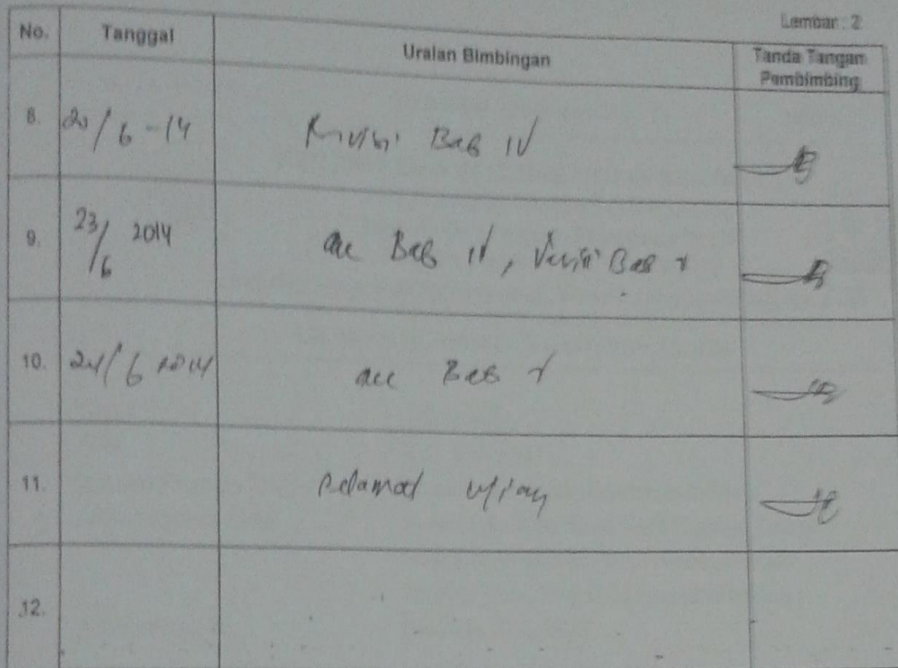 Lembar : 2
No. Tanggal Uraian Bimbingan Tanda Tangan Pembimbing
8. 20/6-14 Revisi Bab IV
9. 23/6 2014 acc Bab IV, Revisi Bab V
10. 24/6 2014 acc Bab V
11. Selamat Ujian
12.